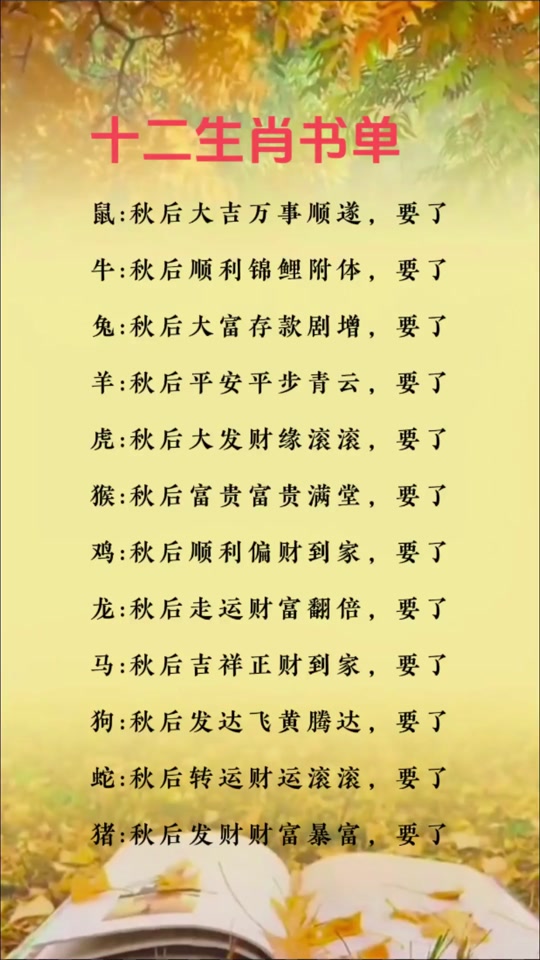 十二生肖书单
鼠:秋后大吉万事顺遂，要了
牛:秋后顺利锦鲤附体，要了
兔:秋后大富存款剧增，要了
羊:秋后平安平步青云，要了
虎:秋后大发财缘滚滚，要了
猴:秋后富贵富贵满堂，要了
鸡:秋后顺利偏财到家，要了
龙:秋后走运财富翻倍，要了
马:秋后吉祥正财到家，要了
狗:秋后发达飞黄腾达，要了
蛇:秋后转运财运滚滚，要了
猪:秋后发财财富暴富，要了